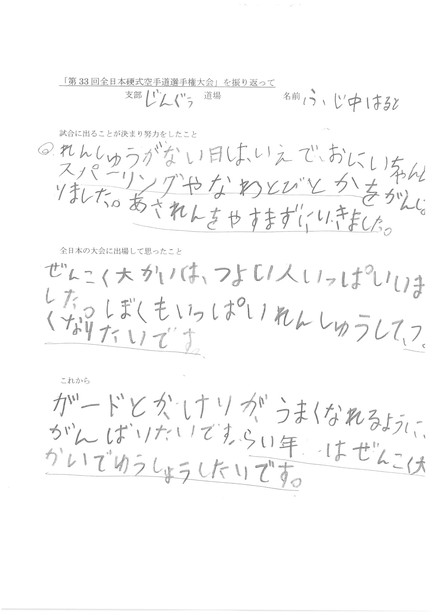 「第33回全日本硬式空手道選手権大会」を振り返って
支部 じんぐう 道場 名前 ふじ中はると
試合に出ることが決まり努力をしたこと
れんしゅうがない日は、いえで、おにいちゃんと
スパーリングやなわとびとかをがんば
りました。あされんをやすまずにいきました。
全日本の大会に出場して思ったこと
ぜんこく大かいは、つよい人いっぱいいま
した。ぼくもいっぱいれんしゅうして、つ
くなりたいです。
これから
ガードとか、けりが、うまくなれるように、
がんばりたいです。らい年 はぜんこく大
かいでゆうしょうしたいです。